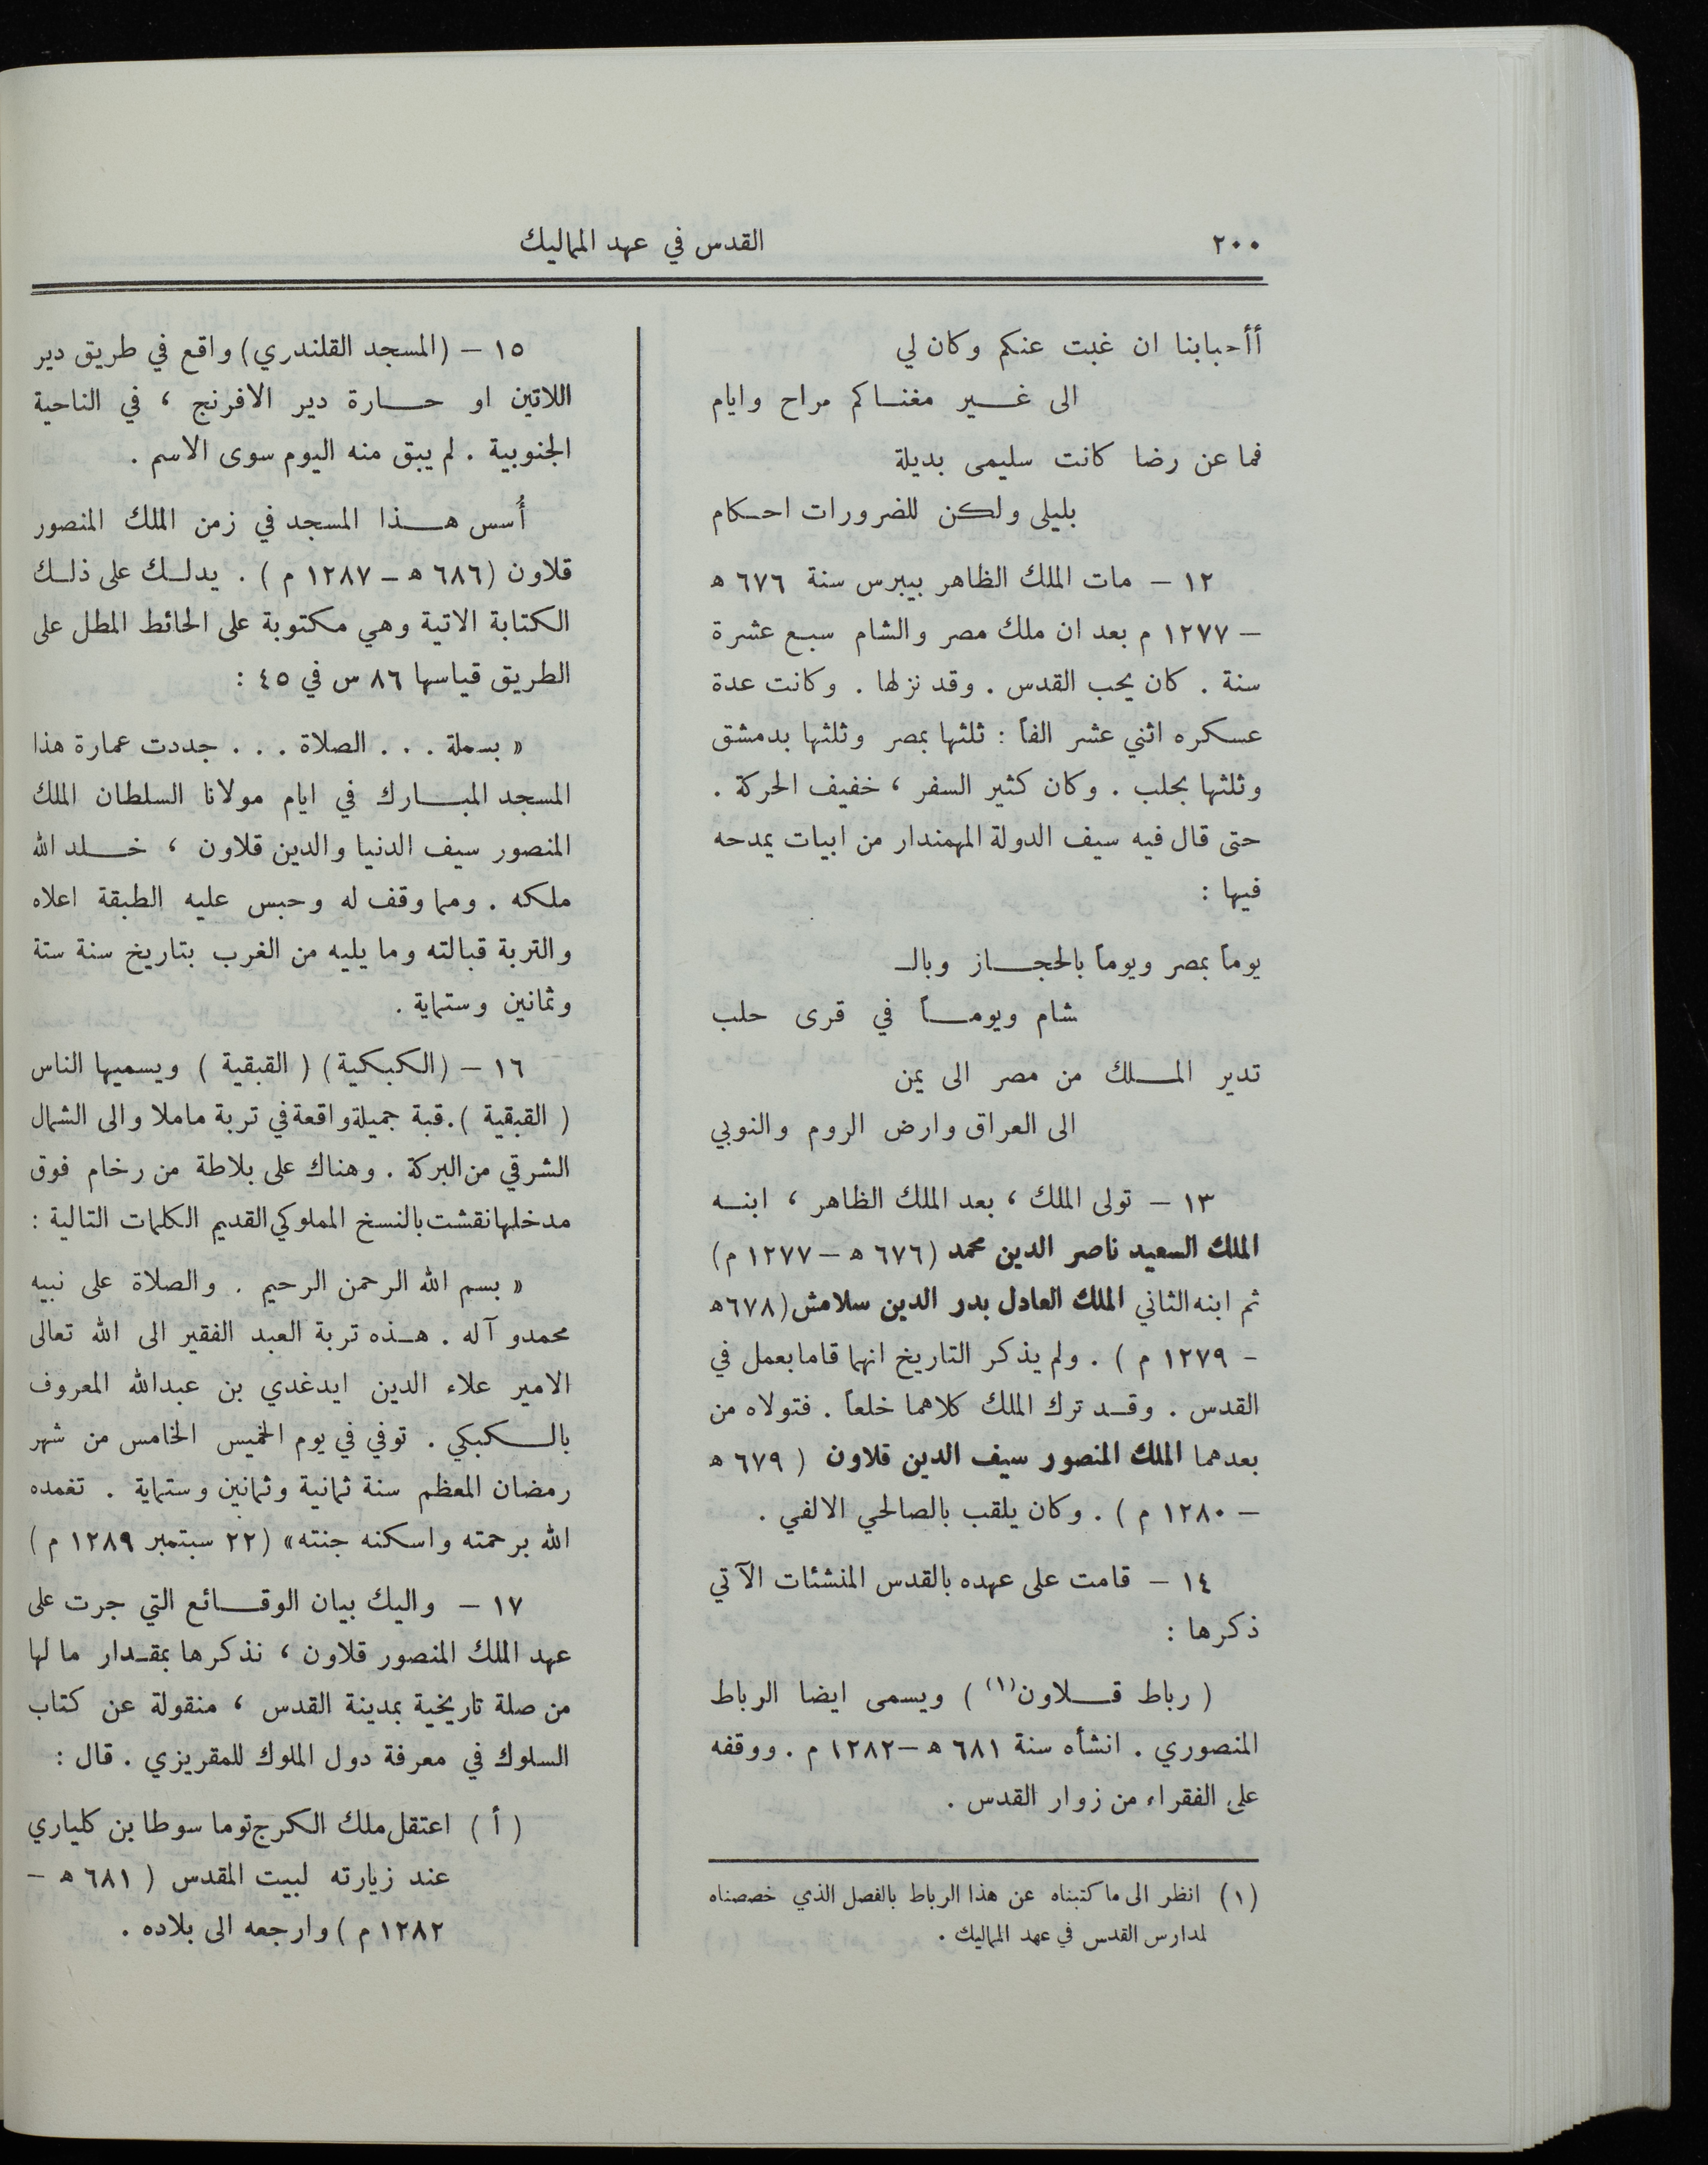 ٢٠٠
القدس في عهد المماليك
أأحبابنا ان غبت عنكم وكان لي
الى غير مغناكم مراح وايام
فما عن رضا كانت سليمى بديلة
بليلى ولكن للضرورات احكام
١٢ – مات الملك الظاهر بيبرس سنة ٦٧٦ ه
– ١٢٧٧ م بعد ان ملك مصر والشام سبع عشرة
سنة . كان يحب القدس . وقد نزلها . وكانت عدة
عسكره اثني عشر الفاً : ثلثها بمصر وثلثها بدمشق
وثلثها بحلب . وكان كثير السفر ، خفيف الحركة .
حتى قال فيه سيف الدولة المهمندار من ابيات يمدحه
فيها :
يوماً بمصر ويوماً بالحجاز وبالـ
شام ويوماً في قرى حلب
تدير الملك من مصر الى يمن
الى العراق وارض الروم والنوبي
١٣ – تولى الملك ، بعد الملك الظاهر ، ابنه
الملك السعيد ناصر الدين محمد (٦٧٦ ه – ١٢٧٧ م)
ثم ابنه الثاني الملك العادل بدر الدين سلامش (٦٧٨ه
– ١٢٧٩ م ) . ولم يذكر التاريخ انهما قاما بعمل في
القدس . وقد ترك الملك كلاهما خلعاً . فتولاه من
بعدهما الملك المنصور سيف الدين قلاون ( ٦٧٩ ه
– ١٢٨٠ م ) . وكان يلقب بالصالحي الالفي .
١٤ – قامت على عهده بالقدس المنشئات الآتي
ذكرها :
( رباط قلاون(١) ) ويسمى ايضا الرباط
المنصوري . انشأه سنة ٦٨١ ه – ١٢٨٢ م . ووقفه
على الفقراء من زوار القدس .
(١) انظر الى ما كتبناه عن هذا الرباط بالفصل الذي خصصناه
لمدارس القدس في عهد المماليك .
١٥ – (المسجد القلندري) واقع في طريق دير
اللاتين او حارة دير الافرنج ، في الناحية
الجنوبية . لم يبق منه اليوم سوى الاسم .
أُسس هذا المسجد في زمن الملك المنصور
قلاون (٦٨٦ ه – ١٢٨٧ م ) . يدلك على ذلك
الكتابة الاتية وهي مكتوبة على الحائط المطل على
الطريق قياسها ٨٦ س في ٤٥ :
« بسملة . . . الصلاة . . . جددت عمارة هذا
المسجد المبارك في ايام مولانا السلطان الملك
المنصور سيف الدنيا والدين قلاون ، خلد الله
ملكه . ومما وقف له وحبس عليه الطبقة اعلاه
والتربة قبالته وما يليه من الغرب بتاريخ سنة ستة
وثمانين وستماية .
١٦ – (الكبكية) ( القبقية ) ويسميها الناس
( القبقية ). قبة جميلة واقعة في تربة ماملا والى الشمال
الشرقي من البركة . وهناك على بلاطة من رخام فوق
مدخلها نقشت بالنسخ المملوكي القديم الكلمات التالية :
« بسم الله الرحمن الرحيم . والصلاة على نبيه
محمدو آله . هذه تربة العبد الفقير الى الله تعالى
الامير علاء الدين ايدغدي بن عبدالله المعروف
بالكبكي . توفي في يوم الخميس الخامس من شهر
رمضان المعظم سنة ثمانية وثمانين وستماية . تغمده
الله برحمته واسكنه جنته» (٢٢ سبتمبر ١٢٨٩ م )
١٧ – واليك بيان الوقائع التي جرت على
عهد الملك المنصور قلاون ، نذكرها بمقدار ما لها
من صلة تاريخية بمدينة القدس ، منقولة عن كتاب
السلوك في معرفة دول الملوك للمقريزي . قال :
( أ ) اعتقل ملك الكرج توما سوطا بن كلياري
عند زيارته لبيت المقدس ( ٦٨١ ه –
١٢٨٢ م ) وارجعه الى بلاده .